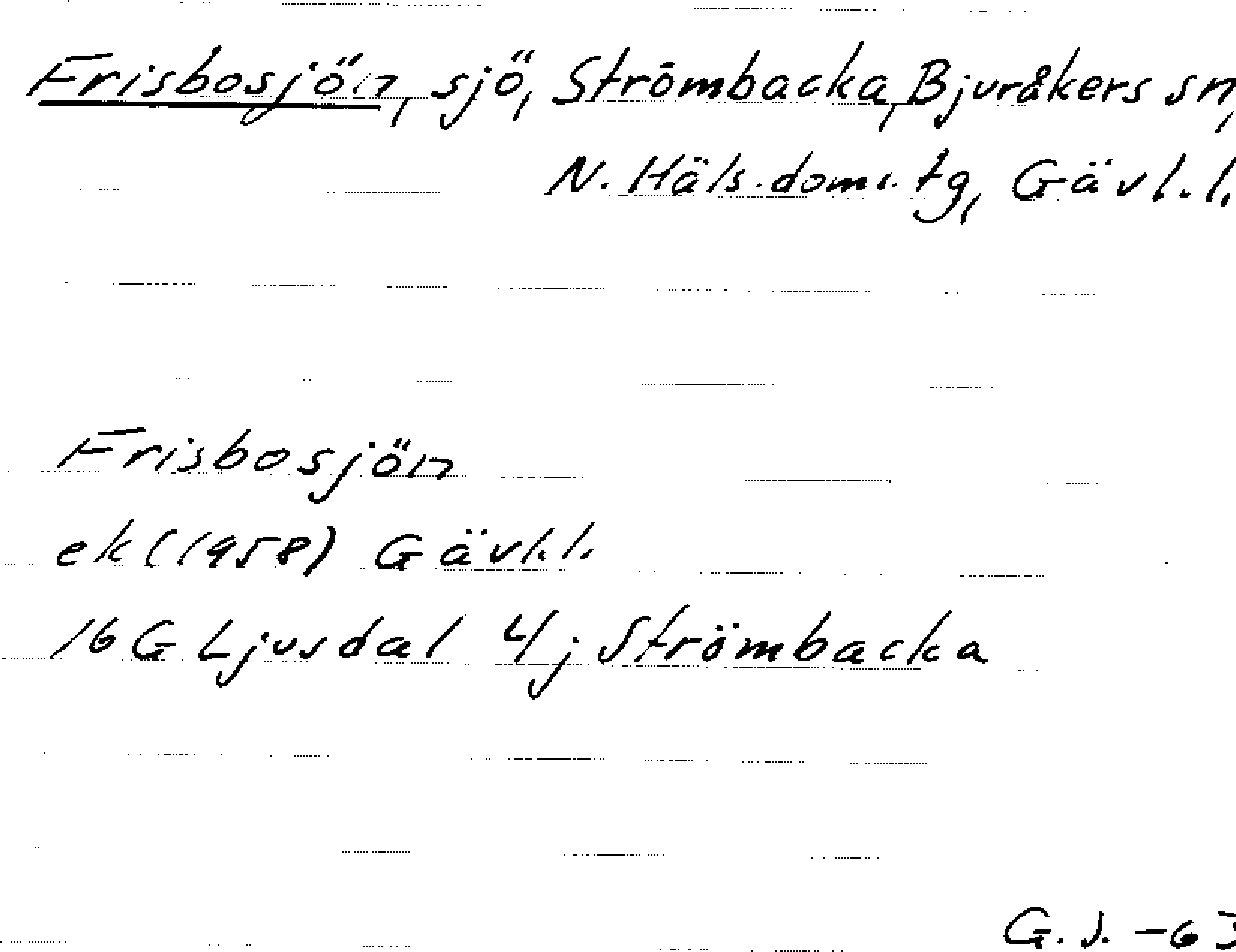 Frisbosjön, sjö, Strömbacka, Bjuråkers sn,
N. Häls. doms. tg, Gävl. l.
Frisbosjön
ek (1958) Gävl. l.
16 G Ljusdal 4j Strömbacka
G. J. -63